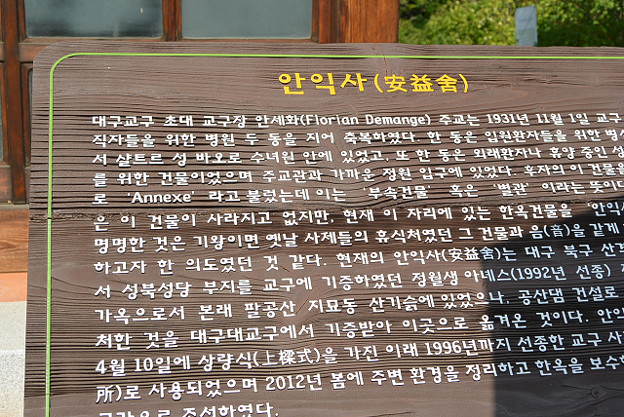 안익사(安益舍)
대구교구 초대 교구장 안세화(Florian Demange) 주교는 1931년 11월 1일 교구
직자들을 위한 병원 두 동을 지어 축복하였다. 한 동은 입원환자들을 위한 병
서 샬트르 성 바오로 수녀원 안에 있었고, 또 한 동은 외래환자나 휴양 중인 성
를 위한 건물이었으며 주교관과 가까운 정원 입구에 있었다. 후자의 이 건물을
로 'Annexe' 라고 불렀는데 이는 '부속건물' 혹은 '별관' 이라는 뜻이다
은 이 건물이 사라지고 없지만, 현재 이 자리에 있는 한옥건물을 '안익사
명명한 것은 기왕이면 옛날 사제들의 휴식처였던 그 건물과 음(音)을 같게
하고자 한 의도였던 것 같다. 현재의 안익사(安益舍)는 대구 북구 산격
서 성북성당 부지를 교구에 기증하였던 정월생 아녜스(1992년 선종)
가옥으로서 본래 팔공산 지묘동 산기슭에 있었으나, 공산댐 건설로
처한 것을 대구대교구에서 기증받아 이곳으로 옮겨온 것이다. 안익
4월 10일에 상량식(上樑式)을 가진 이래 1996년까지 선종한 교구 사
所)로 사용되었으며 2012년 봄에 주변 환경을 정리하고 한옥을 보수
조성하였다.